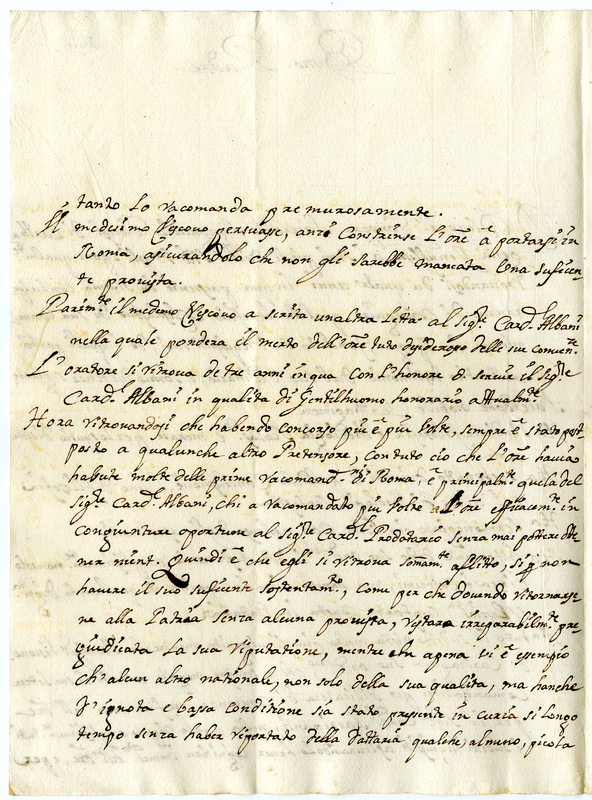 tanto lo racomanda premurosamente.
Il medesimo Vescovo persuase, anzi Constrinse L'Ore à portarsi in
Roma, asicurandolo che non gli sarebbe mancata Una suficen-
te provista.
Parimte il medemo Vescovo a scrita unaltra lettra al Sigre Cardl Albani
nella quale pondera il merto dell'Ore tuto desideroso delle sue
L'oratore si ritrova da tre anni in qua con L'honore di servir il Sigre
Cardl Albani in qualita di Gentilhuomo honorario attualmte
Hora ritrovandosi che habendo concorso più è più Volte, sempre è stato post
posto a qualunche altro Pretensore, con tuto cio che L'Ore havia
habute molte delle prime racomandni di Roma, è principalmte quela del
Sigre Cardl Albani, chi a racomandato più Volte L'Ore efficacemte in
Congiunture oportune al Sigre Cardl Prodatario senza mai pottere otte-
ner nient. Quindi è che egli si ritrova somamte aflitto, si p non
havere il suo suficente sostentamto, come per che dovendo ritornarse-
ne alla Patria senza alcuna provista, ristara irreparabilmte pre-
giudicata la sua riputatione, mentre apena vi è esempio
ch'alcun altro nationale, non solo della sua qualita, ma hanche
d'ignota e bassa Conditione sia stato presente in curia si longo
tempo senza haber riportato della Dattaria qualche, almeno, picola